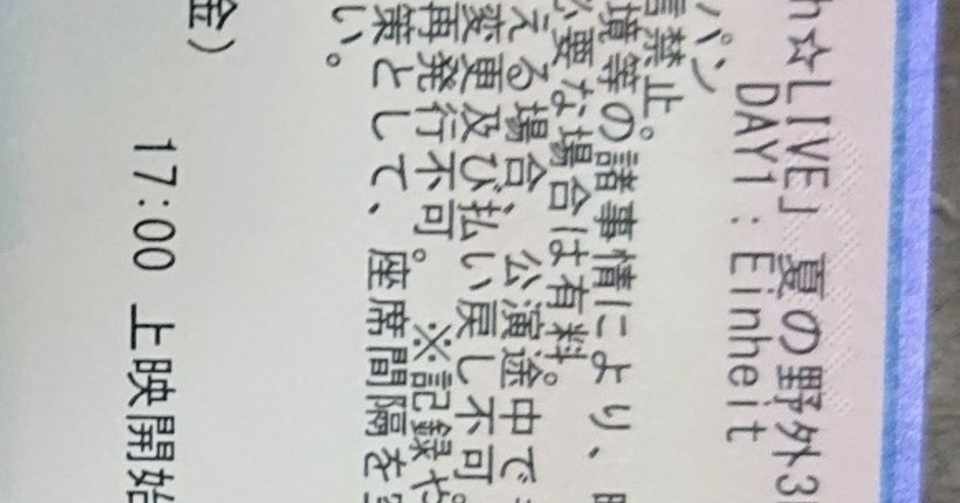 h☆LIVE」 夏の野外3
DAY1：Einheit
パン
禁止。
境等の諸事情により、
必要な場合は有料。
える場合、公演途中で
変更及び払い戻し不可。
再発行不可。 ※記録や
策として、座席間隔を
い。
金） 17:00 上映開始